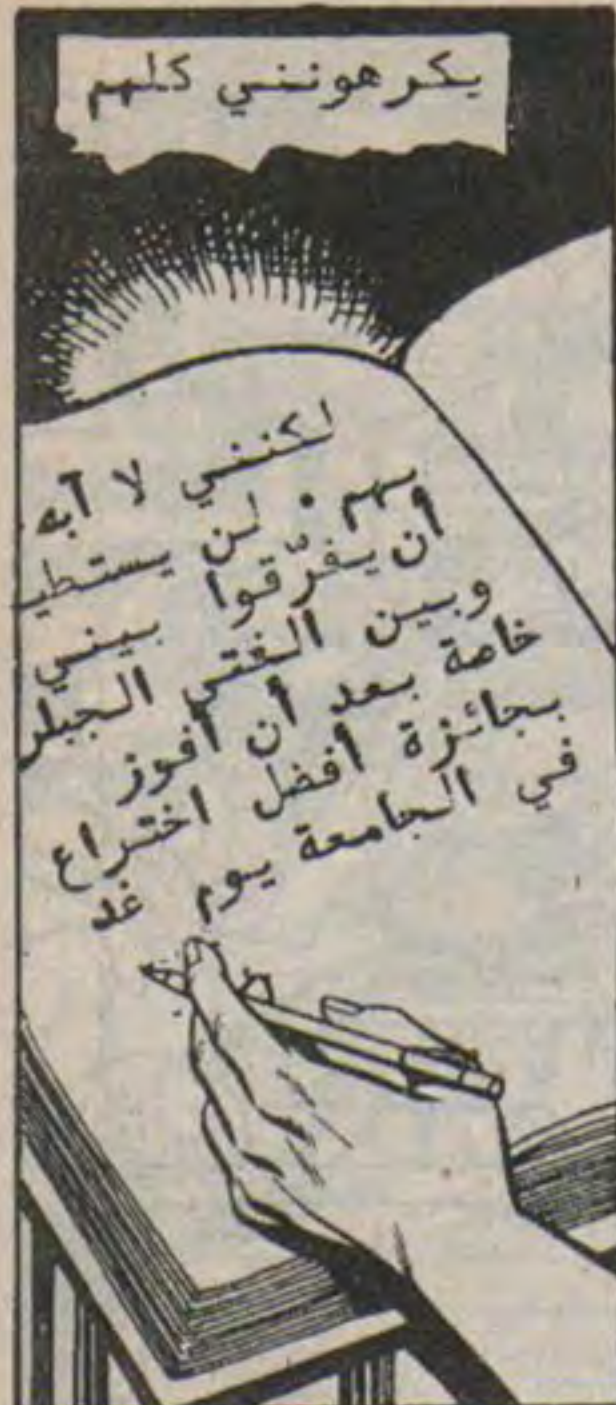 يكرهونني كلهم
لكنني لا آبه
بهم . لن يستطيـ
أن يفرّقوا بيني
وبين الفتى الجبلر
خاصة بعد أن أفوز
بجائزة أفضل اختراع
في الجامعة يوم غد